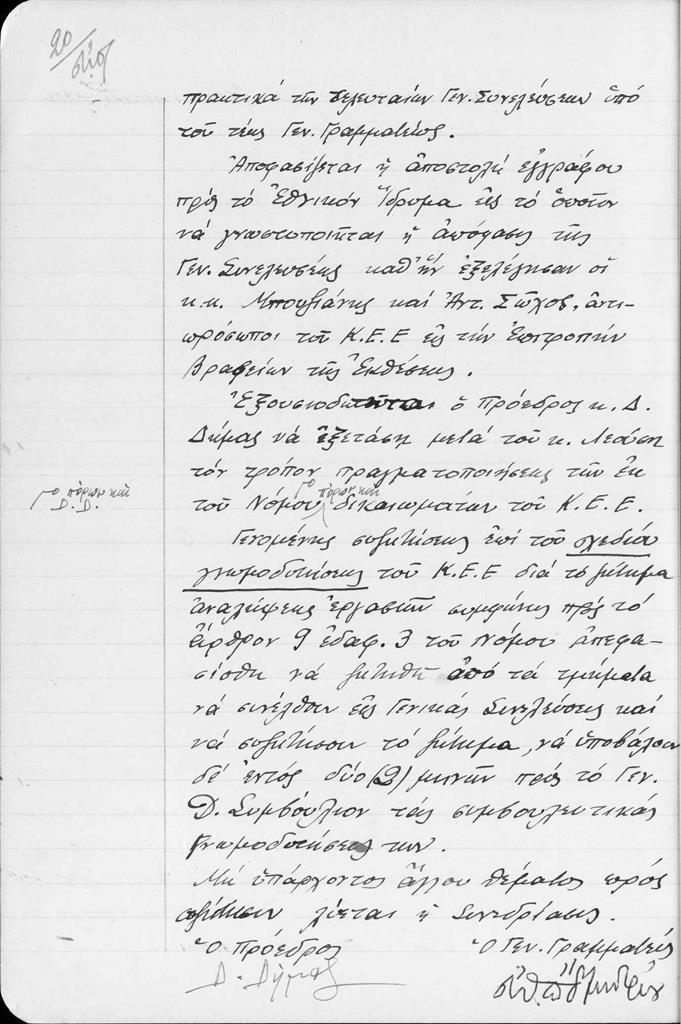 20
πρακτικά τῶν τελευταίων Γεν. Συνελεύσεων ὑπό
τοῦ τέως Γεν. Γραμματέως.
Ἀποφασίζεται ἡ ἀποστολή ἐγγράφου
πρός τό Ἐθνικόν Ἵδρυμα εἰς τό ὁποῖον
νά γνωστοποιῆται ἡ ἀπόφασις τῆς
Γεν. Συνελεύσεως καθ' ἥν ἐξελέγησαν οἱ
κ.κ. Μπουζιάνης καί Ἀντ. Σῶχος, ἀντι-
πρόσωποι τοῦ Κ.Ε.Ε εἰς τήν Ἐπιτροπήν
Βραβείων τῆς Ἐκθέσεως.
Ἐξουσιοδοτεῖται ὁ Πρόεδρος κ. Δ.
Δήμας νά ἐξετάσῃ μετά τοῦ κ.
τόν τρόπον πραγματοποιήσεως τῶν ἐκ
τοῦ Νόμου πόρων καί δικαιωμάτων τοῦ Κ.Ε.Ε.
πόρων καί
Δ.Δ.
Γενομένης συζητήσεως ἐπί τοῦ σχεδίου
γνωμοδοτήσεως τοῦ Κ.Ε.Ε διά τό ζήτημα
ἀναλήψεως ἐργασιῶν συμφώνως πρός τό
ἄρθρον 9 ἐδαφ. 3 τοῦ Νόμου ἀπεφα-
σίσθη νά ζητηθῇ ἀπό τά τμήματα
νά συνέλθουν εἰς Γενικάς Συνελεύσεις καί
νά συζητήσουν τό ζήτημα, νά ὑποβάλουν
δέ ἐντός δύο (2) μηνῶν πρός τό Γεν.
Δ. Συμβούλιον τάς συμβουλευτικάς
γνωμοδοτήσεις των.
Μή ὑπάρχοντος ἄλλου θέματος πρός
συζήτησιν λύεται ἡ Συνεδρίασις.
Ὁ Πρόεδρος Ὁ Γεν. Γραμματεύς
Δ. Δήμας